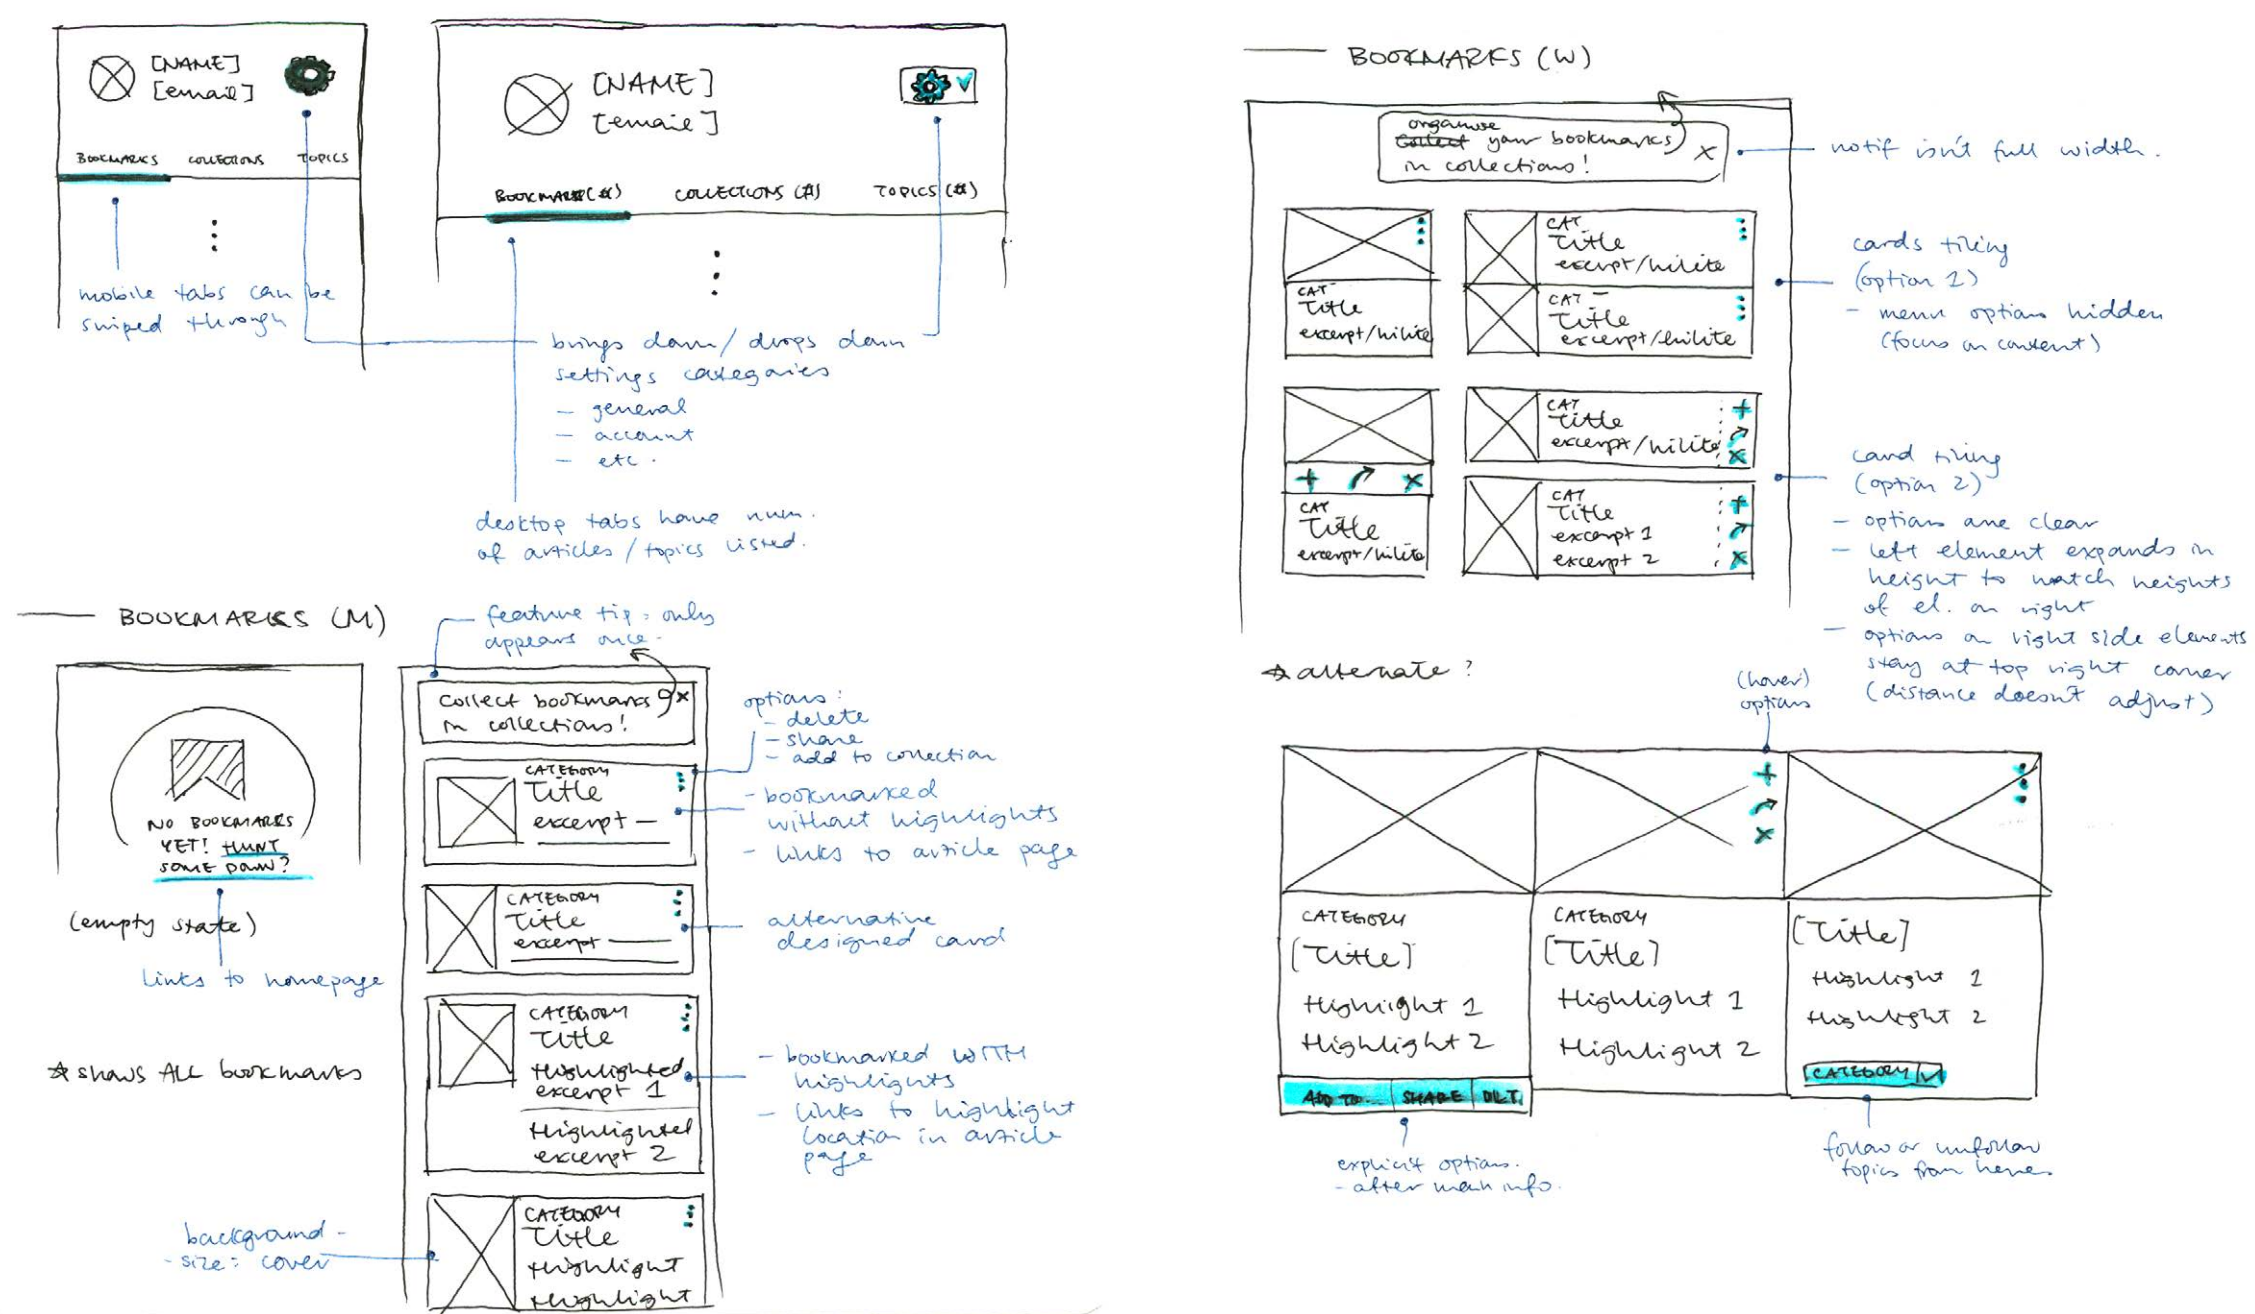 [NAME]
[email]
BOOKMARKS COLLECTIONS TOPICS
mobile tabs can be
swiped through
[NAME]
[email]
BOOKMARKS (#) COLLECTIONS (#) TOPICS (#)
brings down / drops down
settings categories
- general
- account
- etc.
desktop tabs have num.
of articles / topics listed.
BOOKMARKS (M)
NO BOOKMARKS
YET! HUNT
SOME DOWN?
(empty state)
links to homepage
☆ shows ALL bookmarks
feature tip: only
appears once.
collect bookmarks x
in collections!
options:
- delete
- share
- add to collection
CATEGORY
Title
excerpt
- bookmarked
without highlights
- links to article page
CATEGORY
Title
excerpt
alternative
designed card
CATEGORY
Title
Highlighted
excerpt 1
Highlighted
excerpt 2
- bookmarked WITH
highlights
- links to highlight
location in article
page
background-
-size: cover
CATEGORY
Title
Highlight
Highlight
BOOKMARKS (W)
organise
collect your bookmarks
in collections! x
notif isn't full width.
CAT
Title
excerpt/hilite
CAT
Title
excerpt/hilite
CAT
Title
excerpt/hilite
cards tiling
(option 1)
- menu options hidden
(focus on content)
+ x
CAT
Title
excerpt/hilite
CAT
Title
excerpt/hilite
+
x
CAT
Title
excerpt 1
excerpt 2
+
x
card tiling
(option 2)
- options are clear
- left element expands in
height to match heights
of el. on right
- options on right side elements
stay at top right corner
(distance doesn't adjust)
☆ alternate?
(hover)
options
+
x
CATEGORY
[Title]
Highlight 1
Highlight 2
ADD TO... SHARE DLT.
explicit options.
- after main info.
CATEGORY
[Title]
Highlight 1
Highlight 2
[Title]
Highlight 1
Highlight 2
CATEGORY
follow or unfollow
topics from here